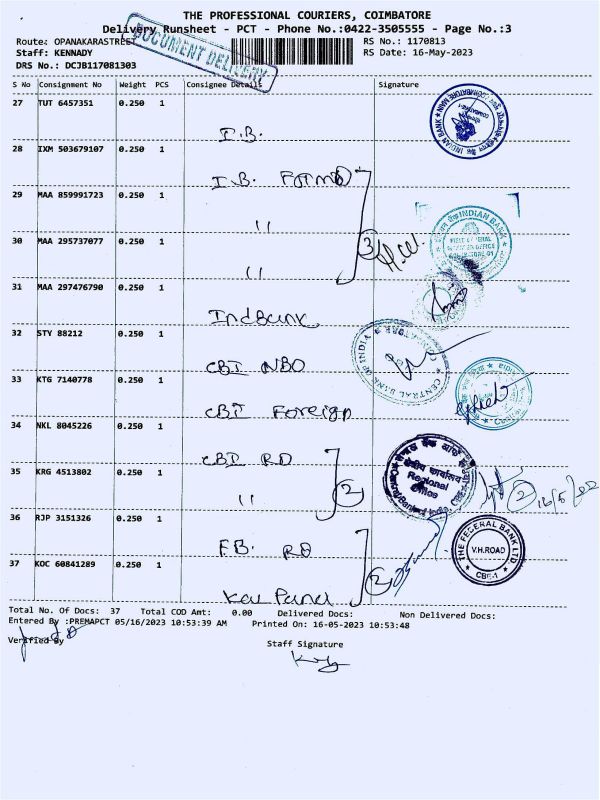 THE PROFESSIONAL COURIERS, COIMBATORE
Delivery Runsheet - PCT - Phone No.:0422-3505555 - Page No.:3
Route: OPANAKARASTREET
RS No.: 1170813
Staff: KENNADY
RS Date: 16-May-2023
DRS No.: DCJB117081303
DOCUMENT DELIVERY
S No Consignment No Weight PCS Consignee Details Signature
27 TUT 6457351 0.250 1
I.B.
INDIAN BANK
28 IXM 503679107 0.250 1
I.B.
29 MAA 859991723 0.250 1
"
INDIAN BANK
30 MAA 295737077 0.250 1
" 3
31 MAA 297476790 0.250 1
Indbank
32 STY 88212 0.250 1
CBI NBO
CENTRAL BANK OF INDIA
33 KTG 7140778 0.250 1
CBI Foreign
34 NKL 8045226 0.250 1
CBI RO
Regional
Office
35 KRG 4513802 0.250 1
" 2
2 16/5/
36 RJP 3151326 0.250 1
FB. RO
THE FEDERAL BANK LTD
V.H.ROAD
CBE-1
37 KOC 60841289 0.250 1
2
Total No. Of Docs: 37 Total COD Amt: 0.00 Delivered Docs: Non Delivered Docs:
Entered By :PREMAPCT 05/16/2023 10:53:39 AM Printed On: 16-05-2023 10:53:48
Verified By
Staff Signature